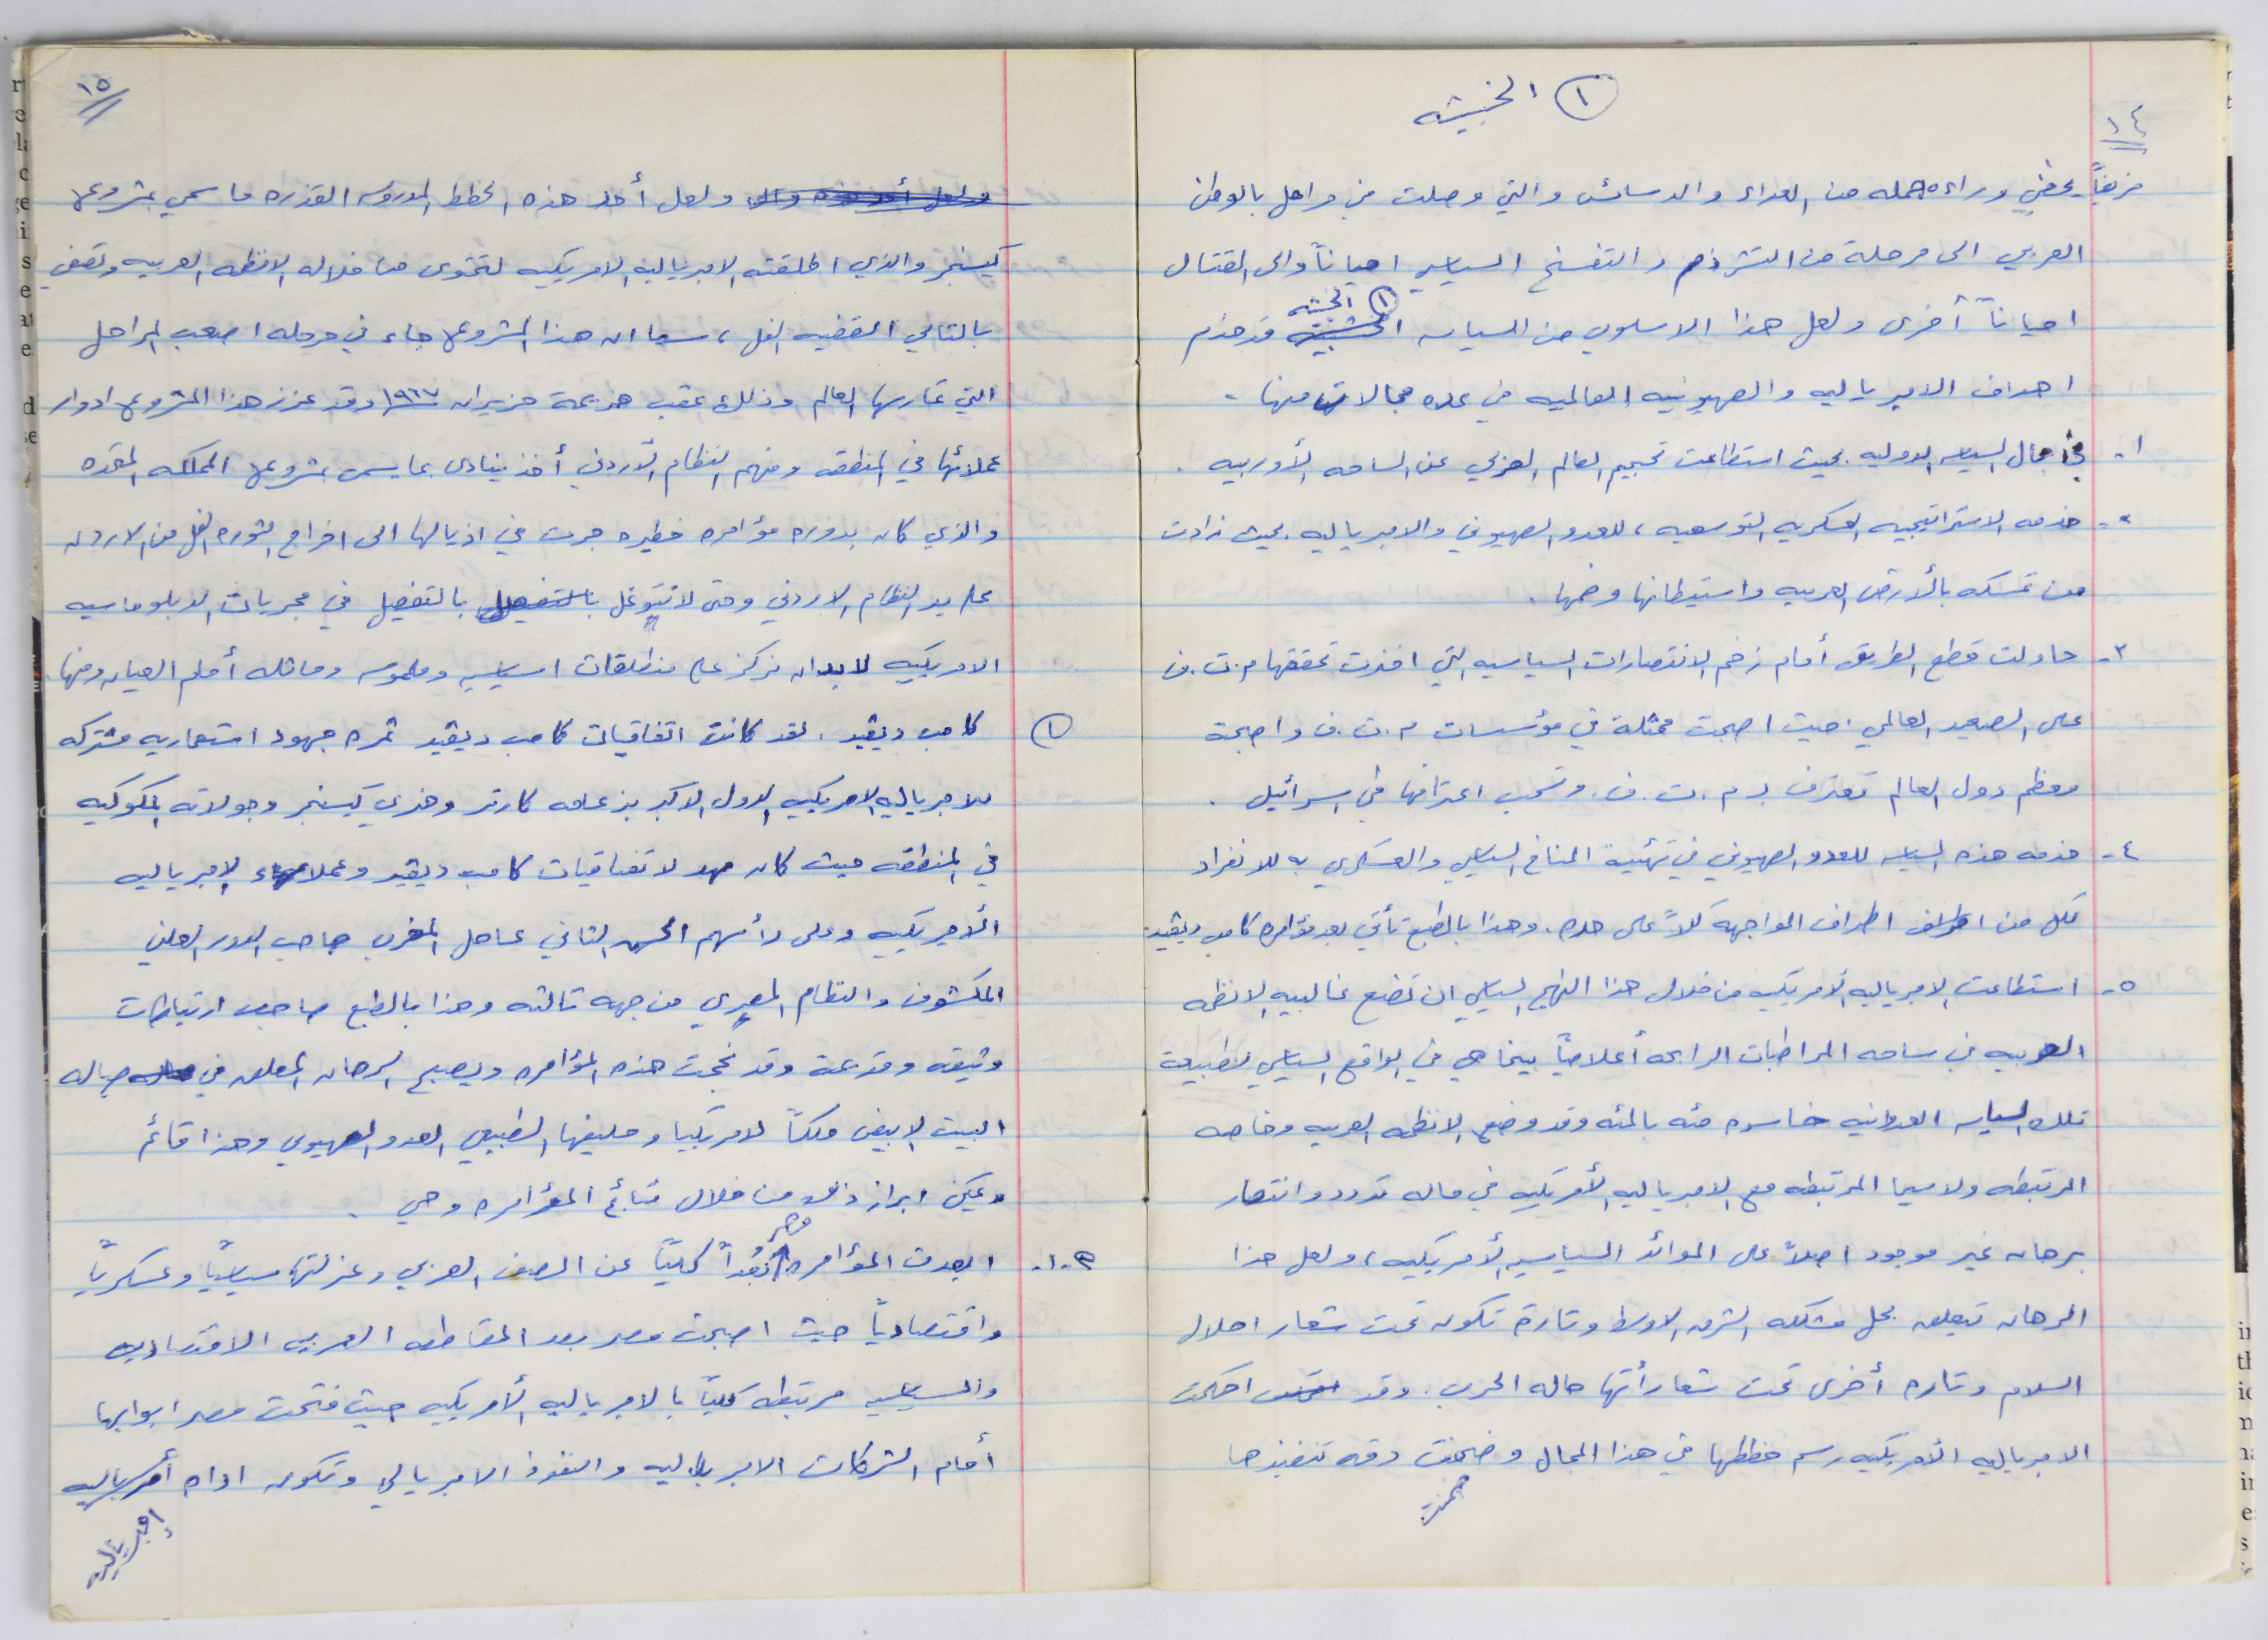 ١٤
① الخبيثه
مزيفاً يخفي وراءه جمله من العداء والدسائس والتي وصلت في مراحل بالوطن
العربي الى مرحلة من التشرذم والتفسخ السياسي احياناً والى القتال
احياناً أخرى ولعل هذا الاسلوب من السياسه ① الخبيثه قد خدم
اهداف الامبرياليه والصهيونيه العالميه في عده مجالات منها -
١- في مجال السياسه الدوليه بحيث استطاعت تحجيم العالم العربي عن الساحه الأوربيه .
٢- خدمه الاستراتيجيه العسكريه التوسعيه، للعدو الصهيوني والامبرياليه بحيث زادت
من تمسكه بالأرض العربيه واستيطانها وضمها .
٣- حاولت قطع الطريق أمام زخم الانتصارات السياسيه التي اخذت تحققها م.ت.ف
على الصعيد العالمي . حيث اصبحت ممثلة في مؤسسات م.ت.ف واصبحة
معظم دول العالم تعترف بـ م.ت.ف. وتسحب اعترافها في اسرائيل .
٤- خدمه هذه السياسه للعدو الصهيوني في تهيئة المناخ السياسي والعسكري له للانفراد
بكل من اطراف المواجهة كلاً على حده. وهذا بالطبع تأتي بعد مؤامره كامب ديفيد
٥- استطاعت الامبرياليه الأمريكيه من خلال هذا النهج السياسي ان تضع غالبيه الانظمه
العربيه في ساحه المراهنات الرابحه أعلامياً بينما هي في الواقع السياسي لطبيعة
تلك السياسه العدوانيه خاسره مئه بالمئه وقد وضع الانظمه العربيه وخاصه
المرتبطه ولاسيما المرتبطه مع الامبرياليه الأمريكيه في حاله تردد وانتصار
برهان غير موجود اصلاً على الموائد السياسيه الأمريكيه، ولعل هذا
الرهان يتعلق بحل مشكله الشرق الاوسط وتارة تكون تحت شعار احلال
السلام وتاره أخرى تحت شعار أنها حاله الحرب. وقد احكمت
الامبرياليه الأمريكيه رسم خططها في هذا المجال وضمنت دقه تنفيذها
ضمنت
١٥
ولعل أحد هذه الخطط المدروسه القذره ما سمي بمشروع
كيسنجر والذي اطلقته الامبرياليه الامريكيه لتحتوى من خلاله الانظمه العربيه وتصفي
بالتالي القضيه الفل، سيما ان هذا المشروع جاء في مرحله اصعب المراحل
التي تمارسها العالم وذلك عقب هزيمة حزيران ١٩٦٧ وقد عزز هذا المشروع ادوار
عملائها في المنطقه ومنهم النظام الأردني أخذ ينادى بما يسمى بمشروع المملكه المتحده
والذي كان بدوره مؤامره خطيره جرت في اذيالها الى اخراج الثوره الفل من الاردن
على يد النظام الاردني وحتى لا نتوغل بالتفصيل في مجريات الدبلوماسيه
الامريكيه لابد ان نركز على منطلقات اساسيه وملموسه وماثله أمام العيان ومنها.
① كامب ديفيد . لقد كانت اتفاقيات كامب ديفيد ثمره جهود استعماريه مشتركه
للامبرياليه الامريكيه الدول الاكبر بزعامه كارتر وهنري كيسنجر وجولاته المكوكيه
في المنطقه حيث كان مهد لاتفاقيات كامب ديفيد وعملاء الامبرياليه
الأمريكيه وعلى رأسهم الحسن الثاني عاهل المغرب صاحب الدور العلني
المكشوف والنظام المصري من جهه ثالثه وهذا بالطبع صاحب ارتباطات
وثيقه وقديمة وقد نجحت هذه المؤامره ويصبح الرهان المعلق في صاله
البيت الابيض ملكاً لامريكا وحليفها الطبيعي العدو الصهيوني وهذا قائم
ويمكن ابراز ذلك من خلال نتائج المؤامره وهي .
١- ابعدت المؤامره مصر بُعداً كلياً عن الصف العربي وعزلتها سياسياً وعسكرياً
واقتصادياً حيث اصبحت مصر بعد المقاطعه العربيه الاقتصاديه
والسياسيه مرتبطه كلياً بالامبرياليه الأمريكيه حيث فتحت مصر ابوابها
أمام الشركات الامبرياليه والنفوذ الامبريالي وتكون اداه أمبرياليه
إمبرياليه